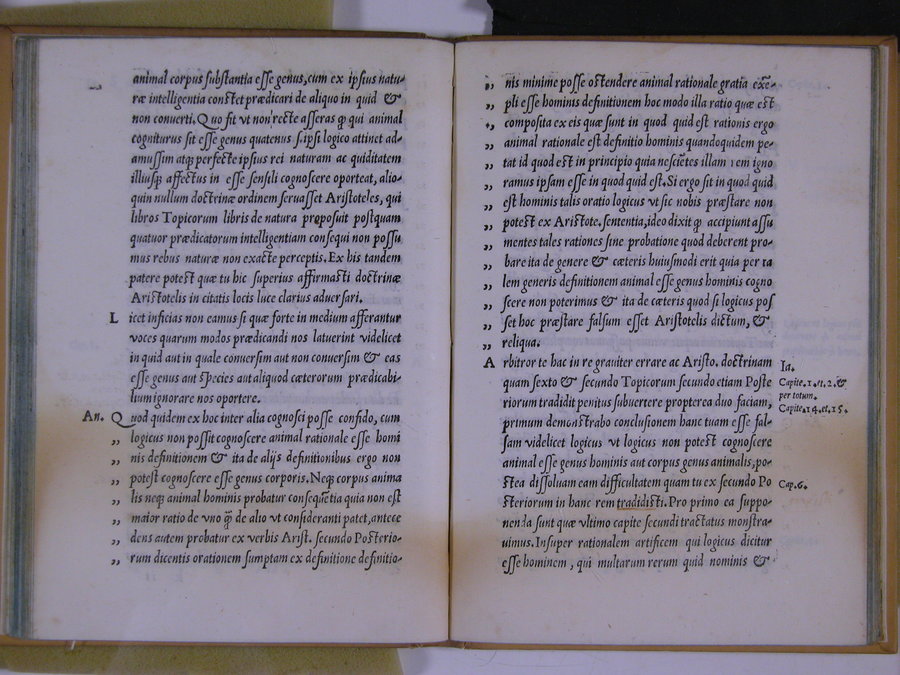 animal corpus substantia esse genus, cum ex ipsius natu-
ræ intelligentia constet prædicari de aliquo in quid &
non conuerti. Quo fit vt non recte asseras ꝙ qui animal
cogniturus sit esse genus quatenus saipsi logico attinet ad-
amussim atq; perfecte ipsius rei naturam ac quiditatem
illiusq; affectus in esse sensili cognoscere oporteat, alio-
quin nullum doctrinæ ordinem seruasset Aristoteles, qui
libros Topicorum libris de natura proposuit postquam
quatuor prædicatorum intelligentiam consequi non possu
mus rebus naturæ non exacte perceptis. Ex his tandem
patere potest quæ tu hic superius affirmasti doctrinæ
Aristotelis in citatis locis luce clarius aduersari.
Licet inficias non eamus si quæ forte in medium afferantur
voces quarum modos prædicandi nos latuerint videlicet
in quid aut in quale conuersim aut non conuersim & eas
esse genus aut species aut aliquod cæterorum prædicabi-
lium ignorare nos oportere.
An. Quod quidem ex hoc inter alia cognosci posse confido, cum
„ logicus non possit cognoscere animal rationale esse homi
„ nis definitionem & ita de alijs definitionibus ergo non
„ potest cognoscere esse genus corporis. Neq; corpus anima
„ lis neq; animal hominis probatur consequẽtia quia non est
„ maior ratio de vno q̃ de alio vt consideranti patet, antece
„ dens autem probatur ex verbis Arist. secundo Posterio-
„ rum dicentis orationem sumptam ex definitione definitio-
„ nis minime posse ostendere animal rationale gratia exẽ-
„ pli esse hominis definitionem hoc modo illa ratio quæ est
„ composita ex eis quæ sunt in quod quid est rationis ergo
„ animal rationale est definitio hominis quandoquidem pe-
„ tat id quod est in principio quia nesciẽtes illam rem igno
„ ramus ipsam esse in quod quid est. Si ergo sit in quod quid
„ est hominis talis oratio logicus vt sic nobis præstare non
„ potest ex Aristote. sententia, ideo dixit ꝙ accipiunt assu
„ mentes tales rationes sine probatione quod deberent pro-
„ bare ita de genere & cæteris huiusmodi erit quia per ta
„ lem generis definitionem animal esse genus hominis cogno
„ scere non poterimus & ita de cæteris quod si logicus pos
„ set hoc præstare falsum esset Aristotelis dictum, &
„ reliqua.
Arbitror te hac in re grauiter errare ac Aristo. doctrinam
Ia.
quam sexto & secundo Topicorum secundo etiam Poste
Capite.1.et.2.&
per totum.
riorum tradidit penitus subuertere propterea duo faciam,
Capite.14.et.15.
primum demonstrabo conclusionem hanc tuam esse fal-
sam videlicet logicus vt logicus non potest cognoscere
animal esse genus hominis aut corpus genus animalis, po-
stea dissoluam eam difficultatem quam tu ex secundo Po
Cap.6.
steriorum in hanc rem tradidisti. Pro primo ea suppo-
nenda sunt quæ vltimo capite secundi tractatus monstra-
uimus. Insuper rationalem artificem qui logicus dicitur
esse hominem, qui multarum rerum quid nominis &